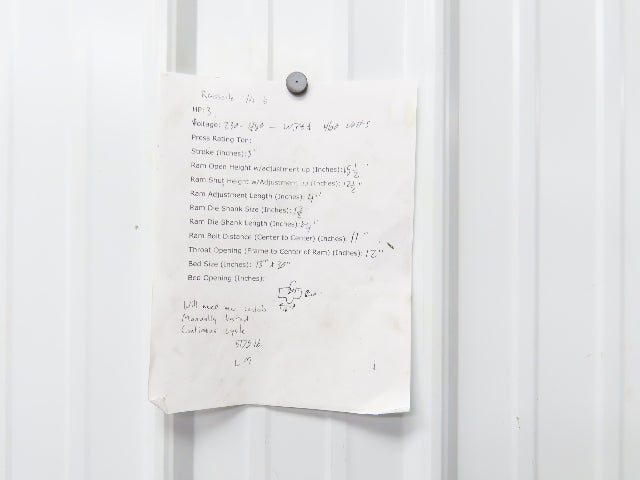 Rousselle No 6
HP: 3
Voltage: 230-460 - wired 460 volts
Press Rating Ton:
Stroke (Inches): 3"
Ram Open Height w/adjustment up (Inches): 15 1/2"
Ram Shut Height w/Adjustment up (Inches): 12 1/2"
Ram Adjustment Length (Inches):
Ram Die Shank Size (Inches):
Ram Die Shank Length (Inches):
Ram Bolt Distance (Center to Center) (Inches): 11"
Throat Opening (Frame to Center of Ram) (Inches): 12"
Bed Size (Inches): 13" x 20"
Bed Opening (Inches):
Will need new controls
Manually tested
Continuous cycle